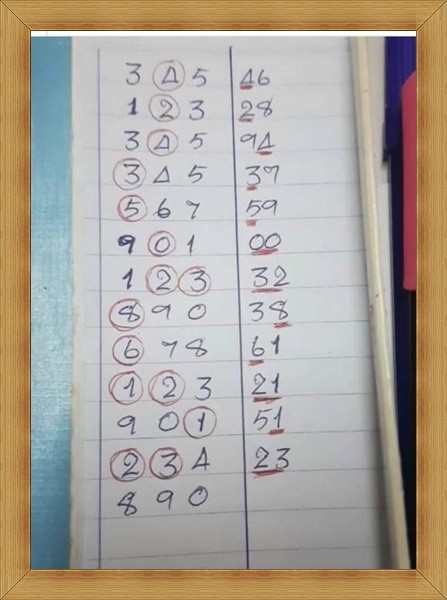 3 4 5 46
1 2 3 28
3 4 5 94
3 4 5 37
5 6 7 59
9 0 1 00
1 2 3 32
8 9 0 38
6 7 8 61
1 2 3 21
9 0 1 51
2 3 4 23
8 9 0